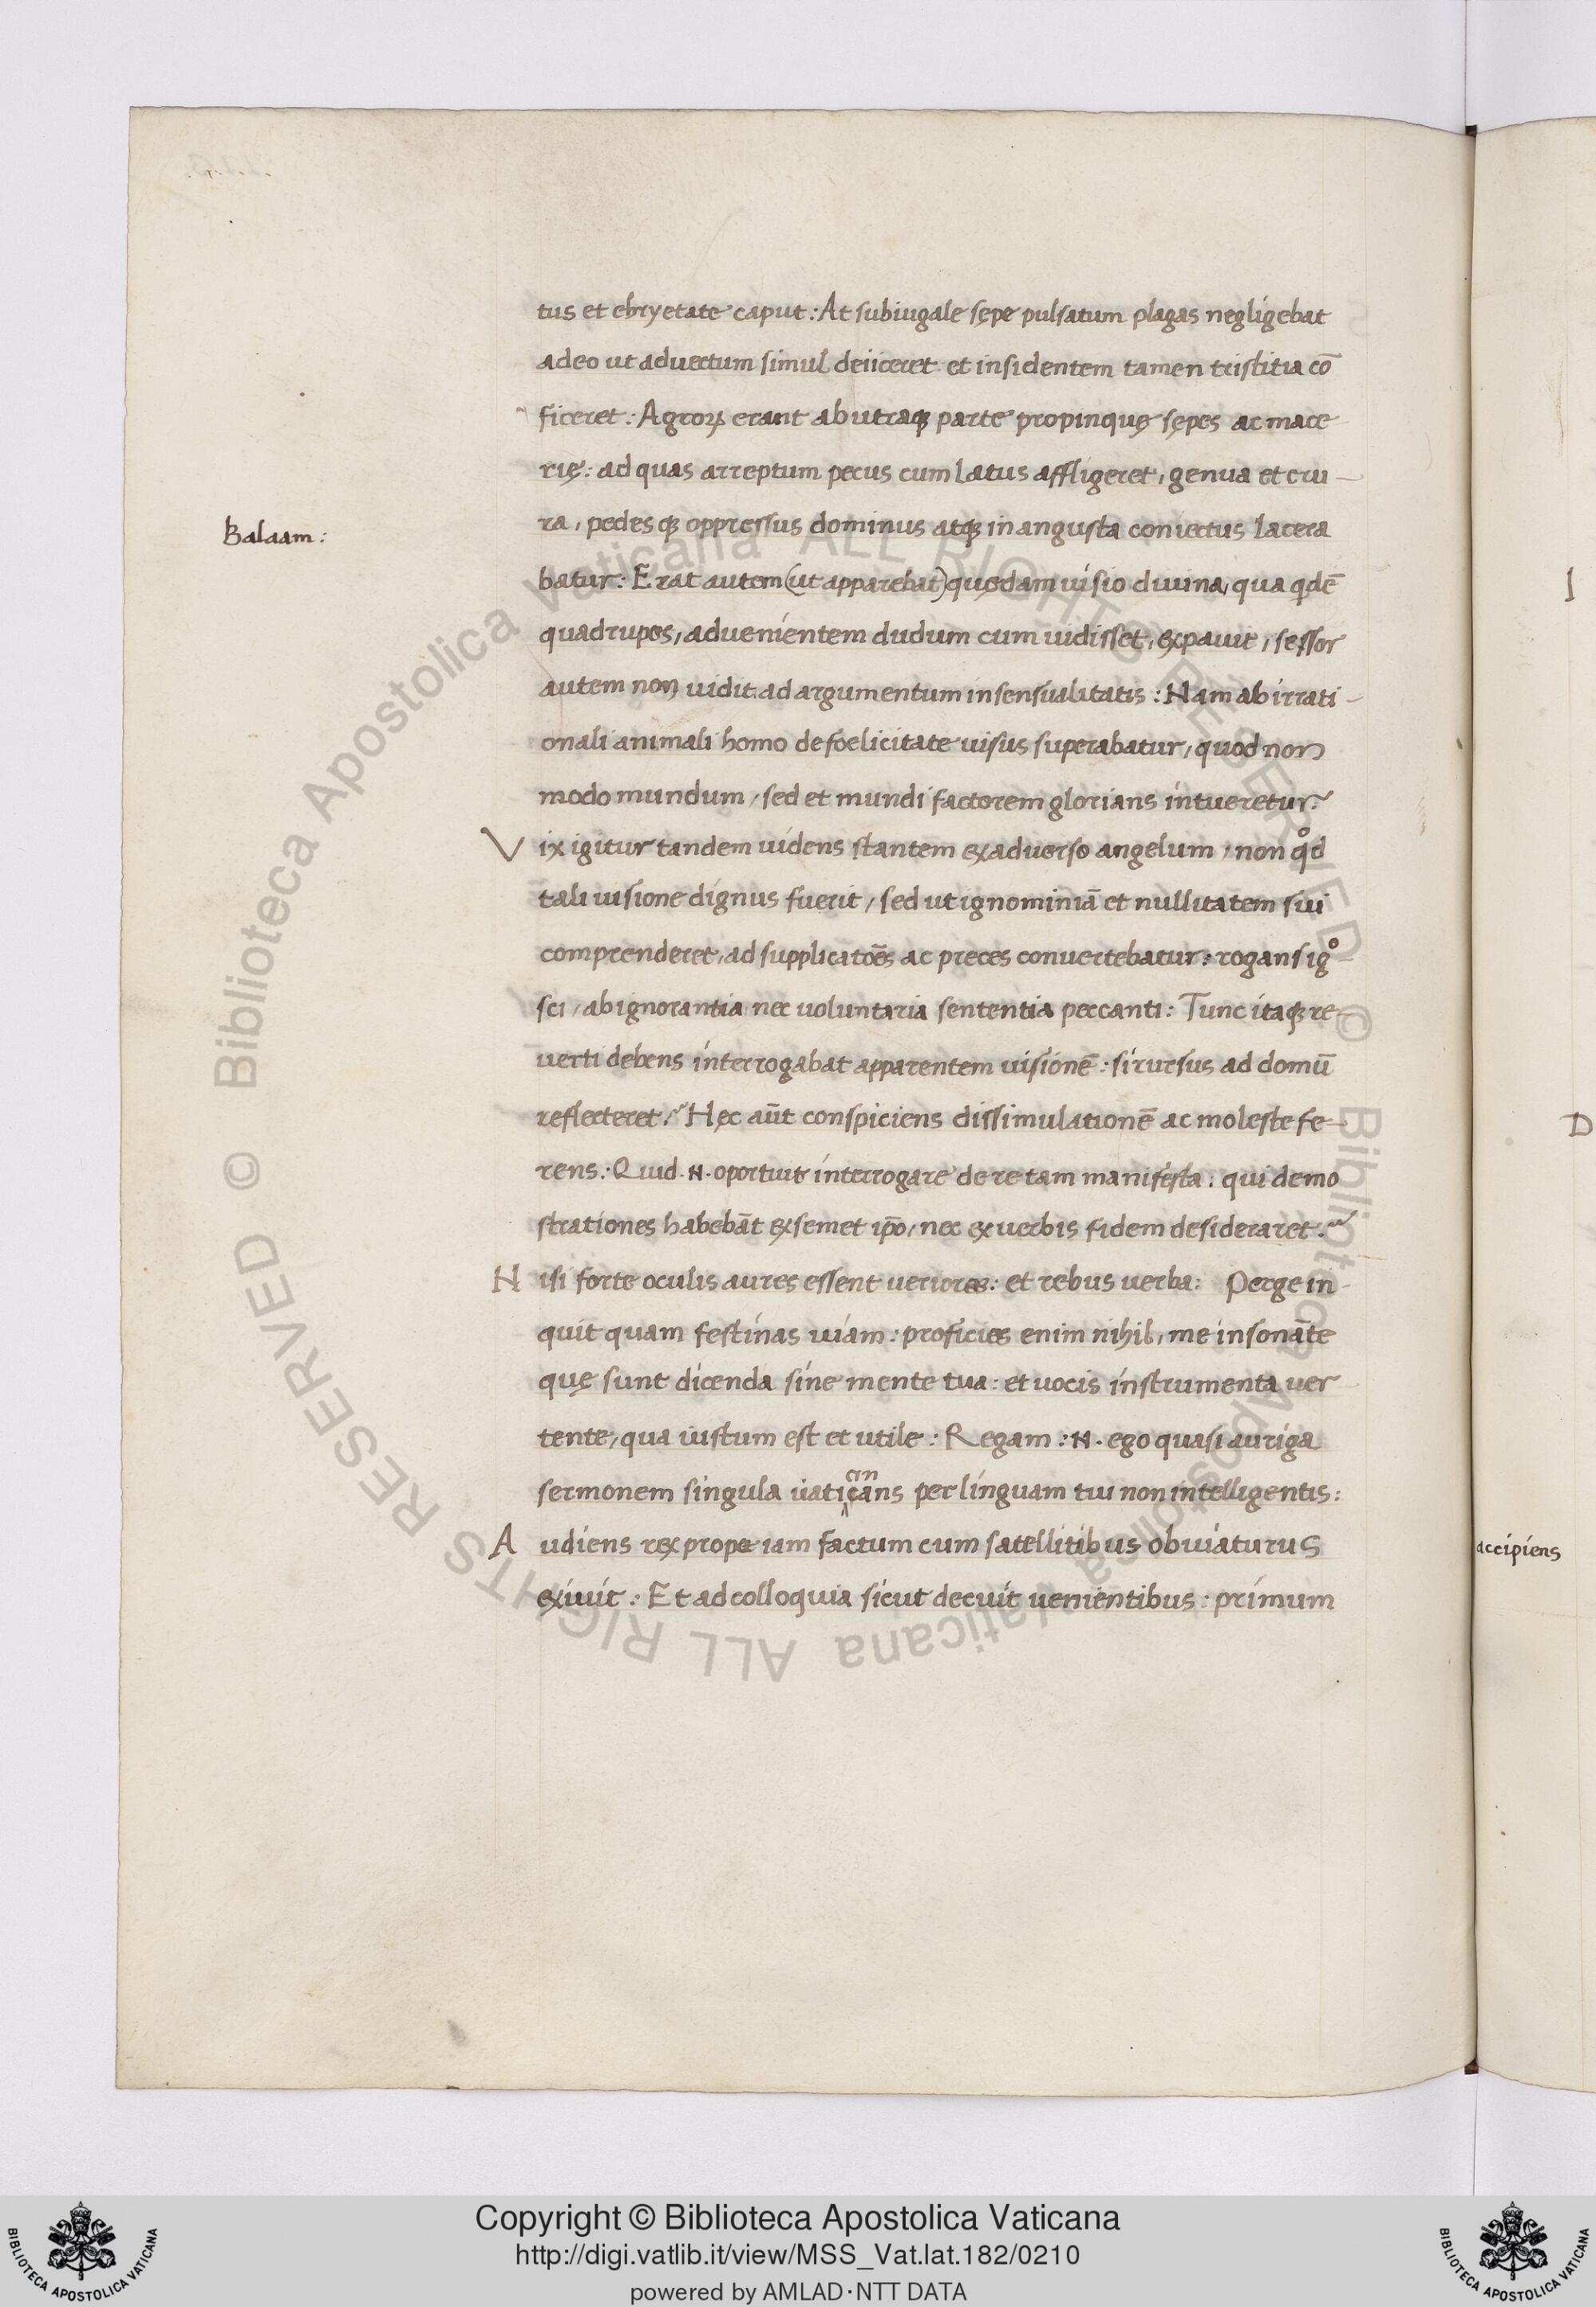 tus et ebryetate caput: At subiugale sępe pulsatum plagas negligebat
adeo ut advectum simul deiiceret et insidentem tamen tristitia cō
ficeret: Agroꝝ erant ab utraqꝫ parte propinquę sępes ac mace
rię: ad quas arreptum pecus cum latus affligeret, genua et cru-
ra, pedesqꝫ oppressus dominus atqꝫ in angusta coniectus lacera
Balaam:
batur: Erat autem (ut apparebat) quędam uisio diuina, qua qdē
quadrupes, aduenientem dudum cum uidisset, expauit, sessor
autem non uidit ad argumentum insensualitatis: Nam ab irrati-
onali animali homo de foelicitate uisus superabatur, quod non
modo mundum, sed et mundi factorem glorians intueretur?
Vix igitur tandem uidens stantem ex aduerso angelum, non qͦd
tali uisione dignus fuerit, sed ut ignominiā et nullitatem sui
comprenderet, ad supplicatōes ac preces conuertebatur: rogans igͦ
sci, ab ignorantia nec uoluntaria sententia peccanti: Tunc itaqꝫ re-
uerti debens interrogabat apparentem uisionē: si rursus ad domū
reflecteret? Hęc aūt conspiciens dissimulationē ac moleste fe-
rens: Quid .N. oportuit interrogare de re tam manifesta: qui demo
strationes habebāt ex semet ip̄o, nec ex uerbis fidem desideraret?
Nisi forte oculis aures essent ueriores: et rebus uerba: Perge in-
quit quam festinas uiam: proficies enim nihil, me insonāte
quę sunt dicenda sine mente tua: et uocis instrumenta uer
tente, qua iustum est et utile: Regam: N. ego quasi auriga
sermonem singula uaticans per linguam tui non intelligentis:
cin
Audiens rex prope iam factum cum satellitibus obuiaturus
exiuit: Et ad colloquia sicut decuit uenientibus: primum
I
D
accipiens
© Biblioteca Apostolica Vaticana ALL RIGHTS RESERVED © Biblioteca Apostolica Vaticana ALL RIGHTS RESERVED
Copyright © Biblioteca Apostolica Vaticana
http://digi.vatlib.it/view/MSS_Vat.lat.182/0210
powered by AMLAD·NTT DATA
BIBLIOTECA APOSTOLICA VATICANA
BIBLIOTECA APOSTOLICA VATICANA